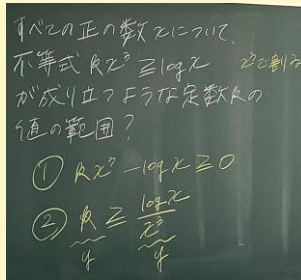 すべての正の数xについて、
不等式 kx³ ≧ logx x³で割る
が成り立つような定数kの
値の範囲？
① kx³ - logx ≧ 0
② k ≧ logx/x³
y y